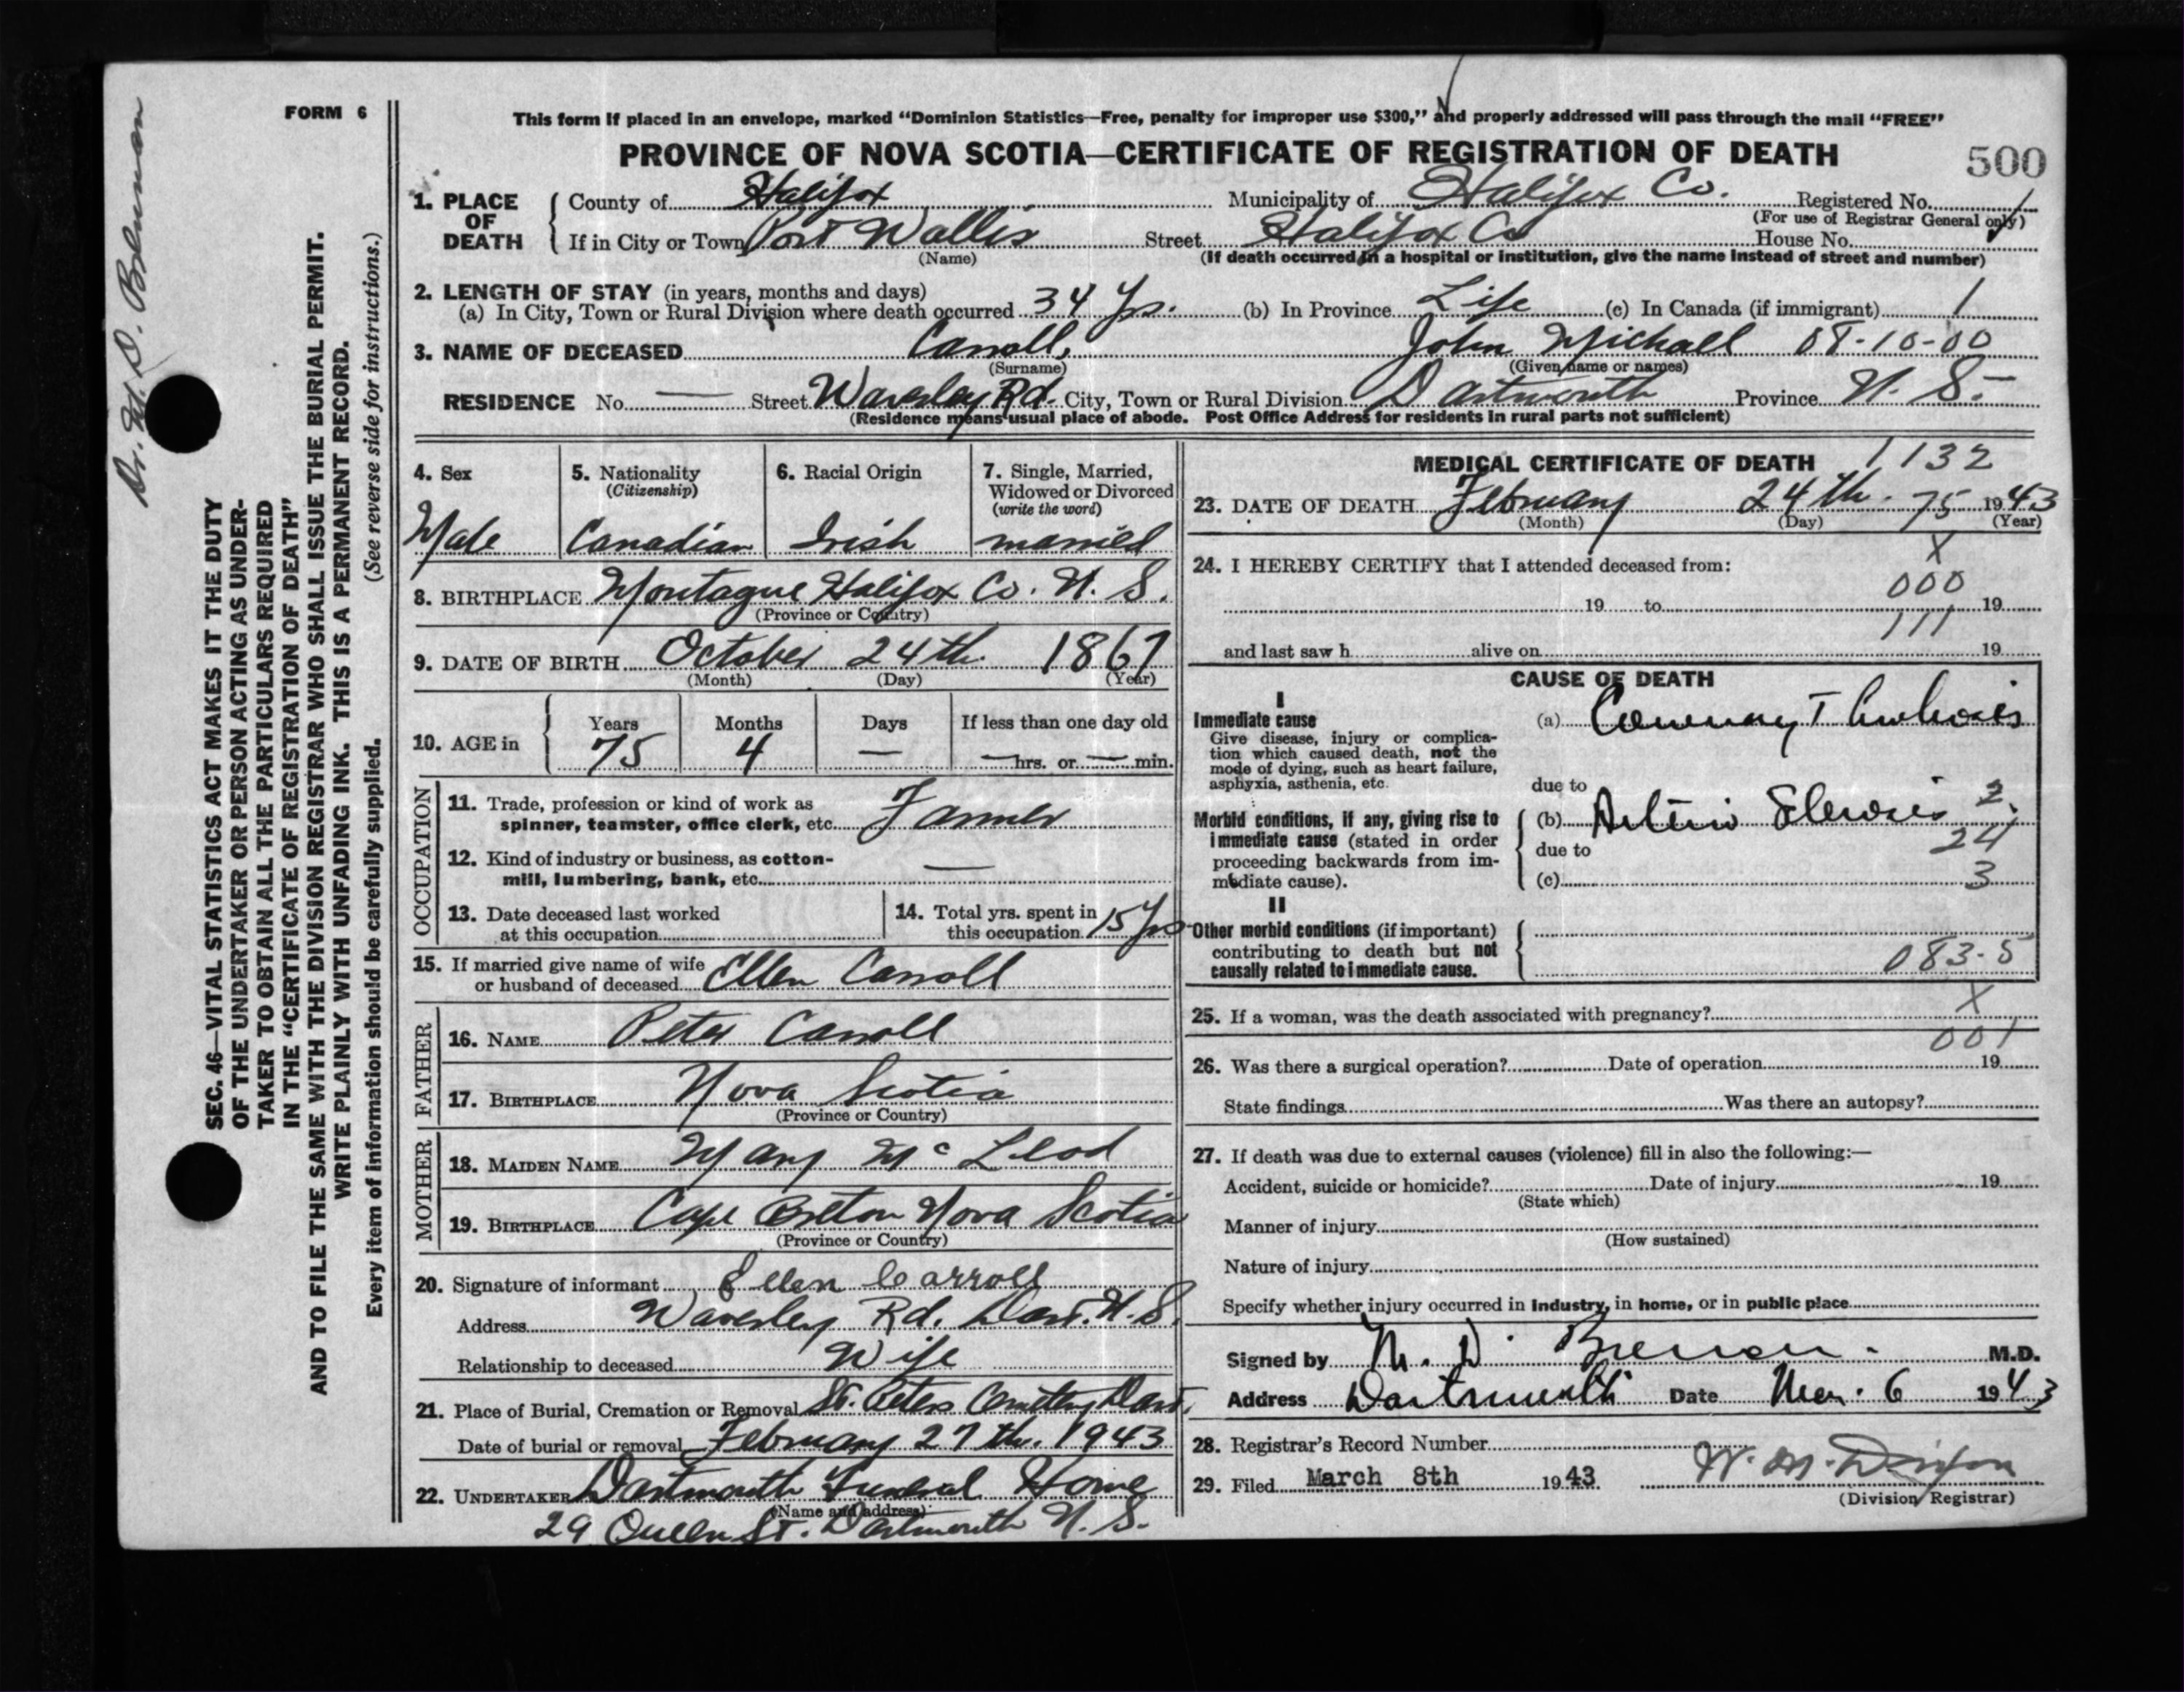 Dr. M. D. Brennan
FORM 6
SEC. 46—VITAL STATISTICS ACT MAKES IT THE DUTY
OF THE UNDERTAKER OR PERSON ACTING AS UNDER-
TAKER TO OBTAIN ALL THE PARTICULARS REQUIRED
IN THE "CERTIFICATE OF REGISTRATION OF DEATH"
AND TO FILE THE SAME WITH THE DIVISION REGISTRAR WHO SHALL ISSUE THE BURIAL PERMIT.
WRITE PLAINLY WITH UNFADING INK. THIS IS A PERMANENT RECORD.
Every item of information should be carefully supplied. (See reverse side for instructions.)
This form if placed in an envelope, marked "Dominion Statistics—Free, penalty for improper use $300," and properly addressed will pass through the mail "FREE"
PROVINCE OF NOVA SCOTIA—CERTIFICATE OF REGISTRATION OF DEATH 500
1. PLACE OF DEATH County of Halifax Municipality of Halifax Co. Registered No.
(For use of Registrar General only)
If in City or Town Port Wallis Street Halifax Co House No.
(Name) (If death occurred in a hospital or institution, give the name instead of street and number)
2. LENGTH OF STAY (in years, months and days)
(a) In City, Town or Rural Division where death occurred 34 Yrs. (b) In Province Life (c) In Canada (if immigrant) 1
3. NAME OF DECEASED Carroll, John Michael 08-10-00
(Surname) (Given name or names)
RESIDENCE No. — Street Waverley Rd. City, Town or Rural Division Dartmouth Province N. S.
(Residence means usual place of abode. Post Office Address for residents in rural parts not sufficient)
4. Sex 5. Nationality (Citizenship) 6. Racial Origin 7. Single, Married, Widowed or Divorced (write the word)
Male Canadian Irish married
8. BIRTHPLACE Montague Halifax Co. N. S.
(Province or Country)
9. DATE OF BIRTH October 24th. 1867
(Month) (Day) (Year)
10. AGE in Years Months Days If less than one day old
75 4 — — hrs. or — min.
OCCUPATION
11. Trade, profession or kind of work as
spinner, teamster, office clerk, etc. Farmer
12. Kind of industry or business, as cotton-
mill, lumbering, bank, etc. —
13. Date deceased last worked
at this occupation
14. Total yrs. spent in
this occupation 15 Yrs
15. If married give name of wife
or husband of deceased Ellen Carroll
FATHER
16. NAME Peter Carroll
17. BIRTHPLACE Nova Scotia
(Province or Country)
MOTHER
18. MAIDEN NAME Mary McLeod
19. BIRTHPLACE Cape Breton Nova Scotia
(Province or Country)
20. Signature of informant Ellen Carroll
Address Waverley Rd. Dart. N. S.
Relationship to deceased Wife
21. Place of Burial, Cremation or Removal St. Peters Cemetery Dart.
Date of burial or removal February 27th. 1943
22. UNDERTAKER Dartmouth Funeral Home
(Name and address)
29 Queen St. Dartmouth N. S.
MEDICAL CERTIFICATE OF DEATH 1132
23. DATE OF DEATH February 24th. 75 1943
(Month) (Day) (Year)
X
24. I HEREBY CERTIFY that I attended deceased from:
000
19 to 19
111
and last saw h alive on 19
CAUSE OF DEATH
I
Immediate cause (a) Coronary Thrombosis
Give disease, injury or complica-
tion which caused death, not the
mode of dying, such as heart failure,
asphyxia, asthenia, etc. due to
Morbid conditions, if any, giving rise to (b) Arterio Sclerosis 2.
immediate cause (stated in order due to 24
proceeding backwards from im-
mediate cause). (c) 3
II
Other morbid conditions (if important)
contributing to death but not
causally related to immediate cause. 083.5
X
25. If a woman, was the death associated with pregnancy?
001
26. Was there a surgical operation? Date of operation 19
State findings Was there an autopsy?
27. If death was due to external causes (violence) fill in also the following:—
Accident, suicide or homicide? Date of injury 19
(State which)
Manner of injury
(How sustained)
Nature of injury
Specify whether injury occurred in industry, in home, or in public place
Signed by M. D. Brennan M.D.
Address Dartmouth Date Mar. 6 1943
28. Registrar's Record Number
29. Filed March 8th 1943
(Division Registrar)